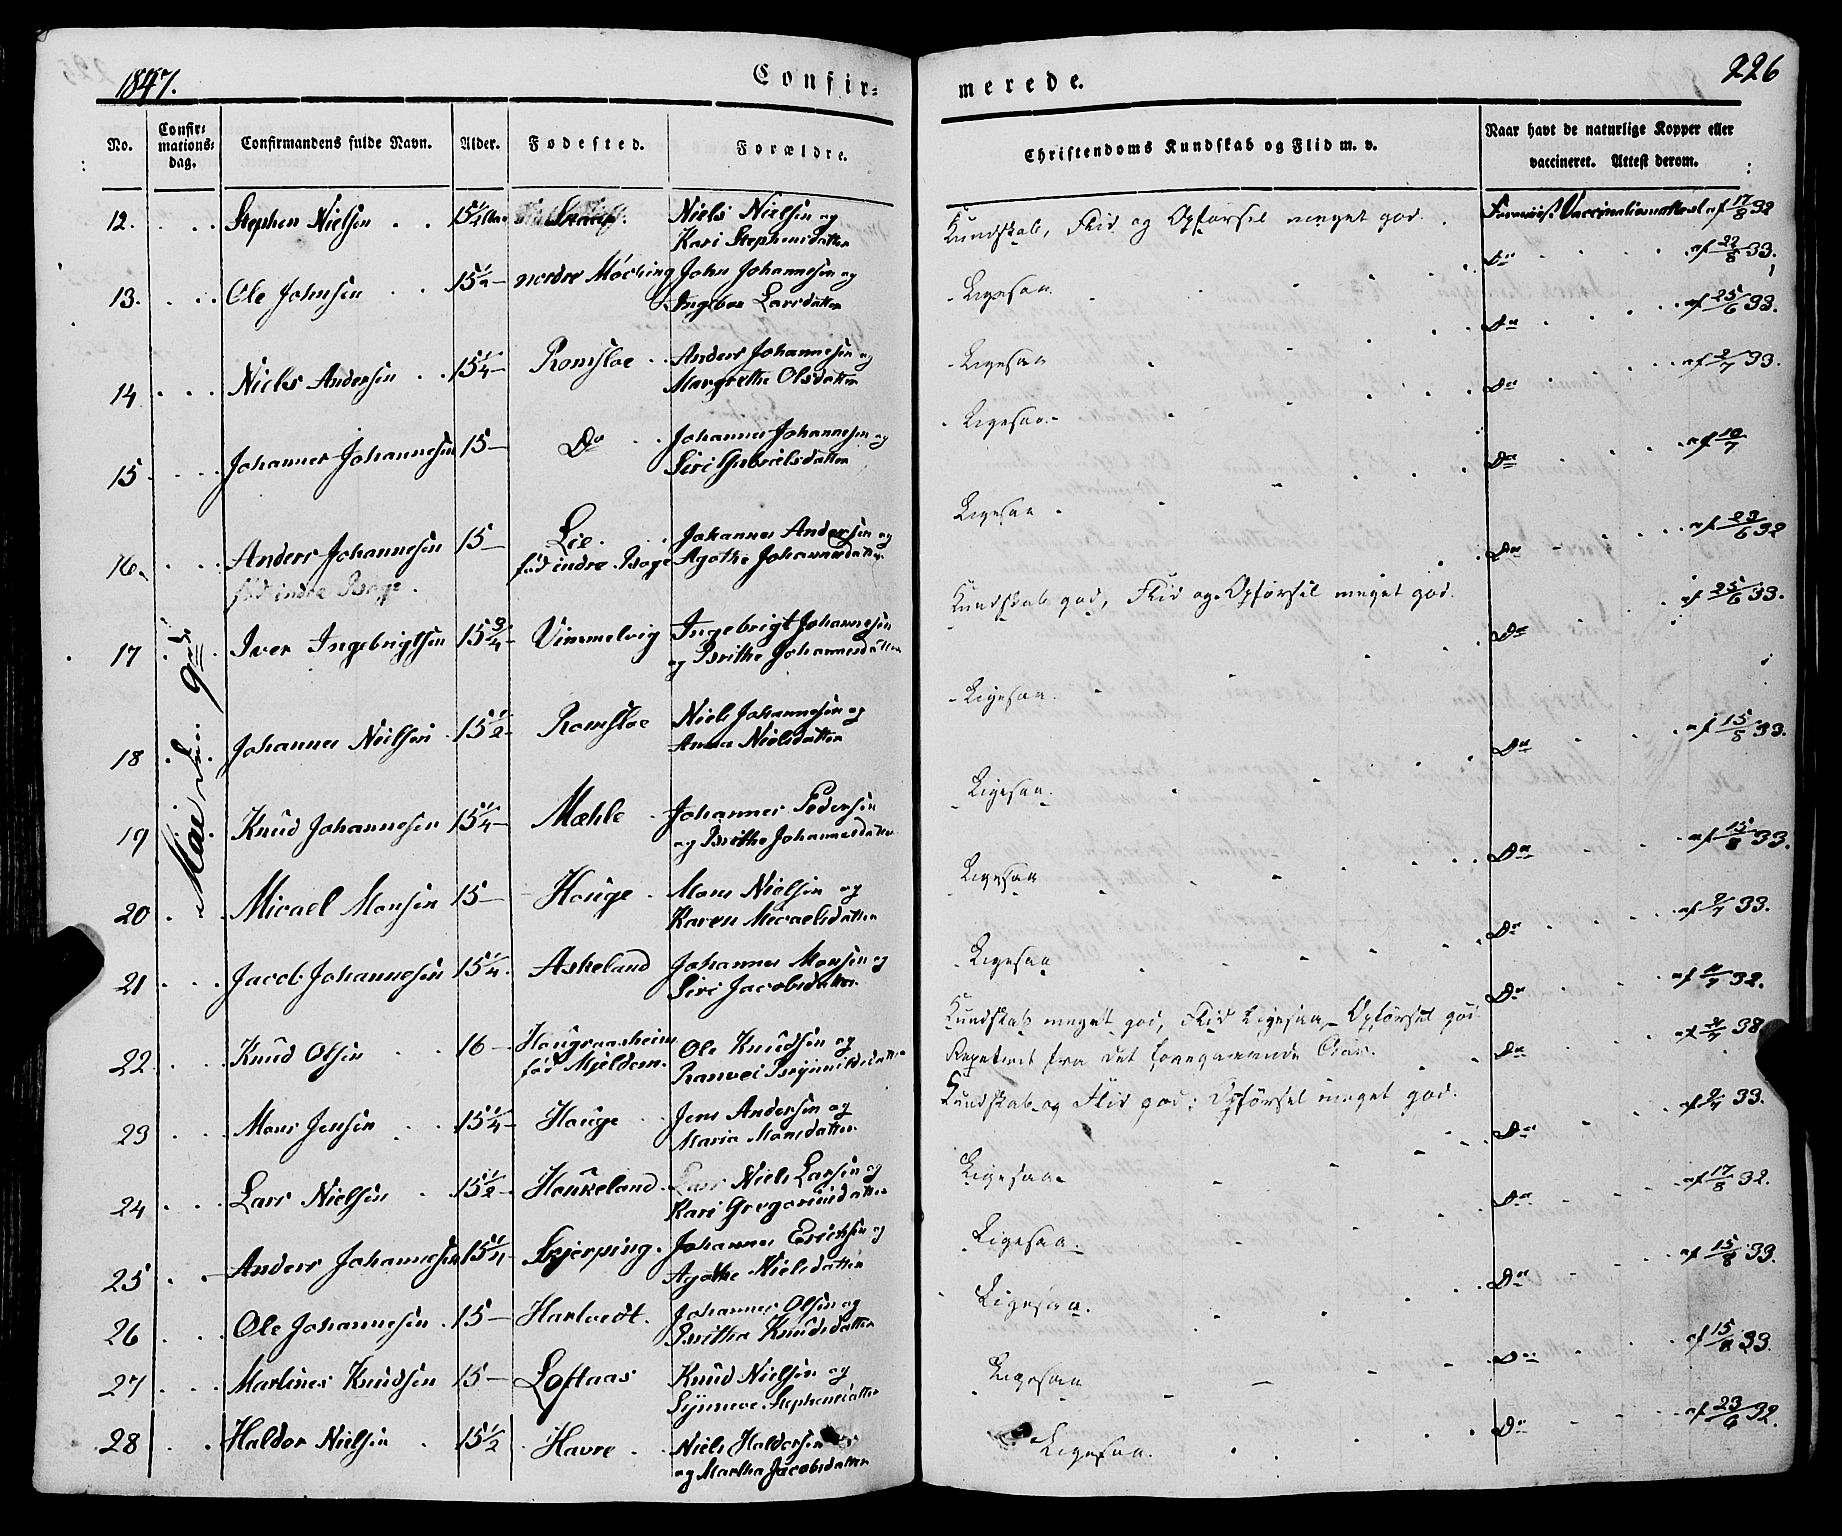 1847.
Confir-
merede.
226
No.
Confir-
mations-
dag.
Confirmandens fulde Navn.
Alder.
Fødested.
Forældre.
Christendoms Kundskab og Flid m. v.
Naar havt de naturlige Kopper eller
vaccineret. Attest derom.
Mai den 9de
12. Stephen Nielsen 15½ Niels Nielsen og
Kari Stephensdatter
Kundskab, Flid og Opførsel meget god. Foreviist Vaccinationsattest af 17/8 32
13. Ole Johnsen 15½ nordre Møching John Johannesen og
Ingebor Larsdatter
Ligesaa Do af 22/8 33.
14 Niels Andersen 15¼ Romsloe Anders Johannesen og
Margrethe Olsdatter
Ligesaa Do af 25/6 33.
15 Johannes Johannesen 15 Do Johannes Johannesen og
Siri Gabrielsdatter
Ligesaa Do af 2/7 33.
16. Anders Johannesen 15 Lie. Johannes Andersen og
fød indre Boge
fød indre Boge Agathe Johannesdatter
Ligesaa Do af 10/7
17 Iver Ingebrigtsen 15¾ Vimmelvig Ingebrigt Johannesen
og Brithe Johannesdatter
Kundskab god, Flid og Opførsel meget god. Do af 23/6 32
18 Johannes Nielsen 15½ Romsloe Niels Johannesen og
Anna Nielsdatter
Ligesaa. Do af 25/6 33.
19 Knud Johannesen 15¼ Mæhle Johannes Pedersen
og Brithe Johannesdatter
Ligesaa. Do af 15/8 33.
20 Micael Monsen 15 Houge Mons Nielsen og
Karen Micaelsdatter
Ligesaa Do af 15/8 33.
21 Jacob Johannesen 15¼ Askeland Johannes Monsen og
Siri Jacobsdatter
Ligesaa Do af 2/7 33.
22 Knud Olsen 16 Ole Knudsen og
fød Mjeldem. Ranvei
Kundskab meget god, Flid Ligesaa, Opførsel god
Repeteret fra det foregaaende Aar. Do 32.
23 Mons Jensen 15¼ Houge Jens Andersen og
Maria Monsdatter
Kundskab og Flid god; Opførsel meget god. Do 38
24 Lars Nielsen 15½ Houkeland Niels Larsen og
Kari Gregoriusdatter
Ligesaa Do af 2/7 33.
25 Anders Johannesen 15¼ Skjerping. Johannes Ericksen og
Agathe Nielsdatter
Ligesaa. Do af 17/8 32.
26 Ole Johannesen 15 Hartvedt. Johannes Olsen og
Britha Knudsdatter
Ligesaa. Do af 15/8 33.
27 Martines Knudsen 15 Loftaas Knud Nielsen og
Synneve Stephensdatter
Ligesaa Do af 15/8 33.
28 Haldor Nielsen 15½ Havre Niels Haldorsen
og Martha Jacobsdatter
Ligesaa. Do af 23/6 32.